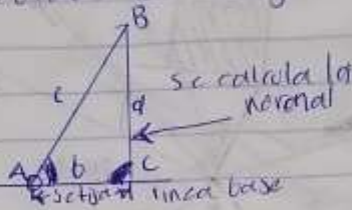 B
c
d
se calcula la
normal
A
b
C
linea base